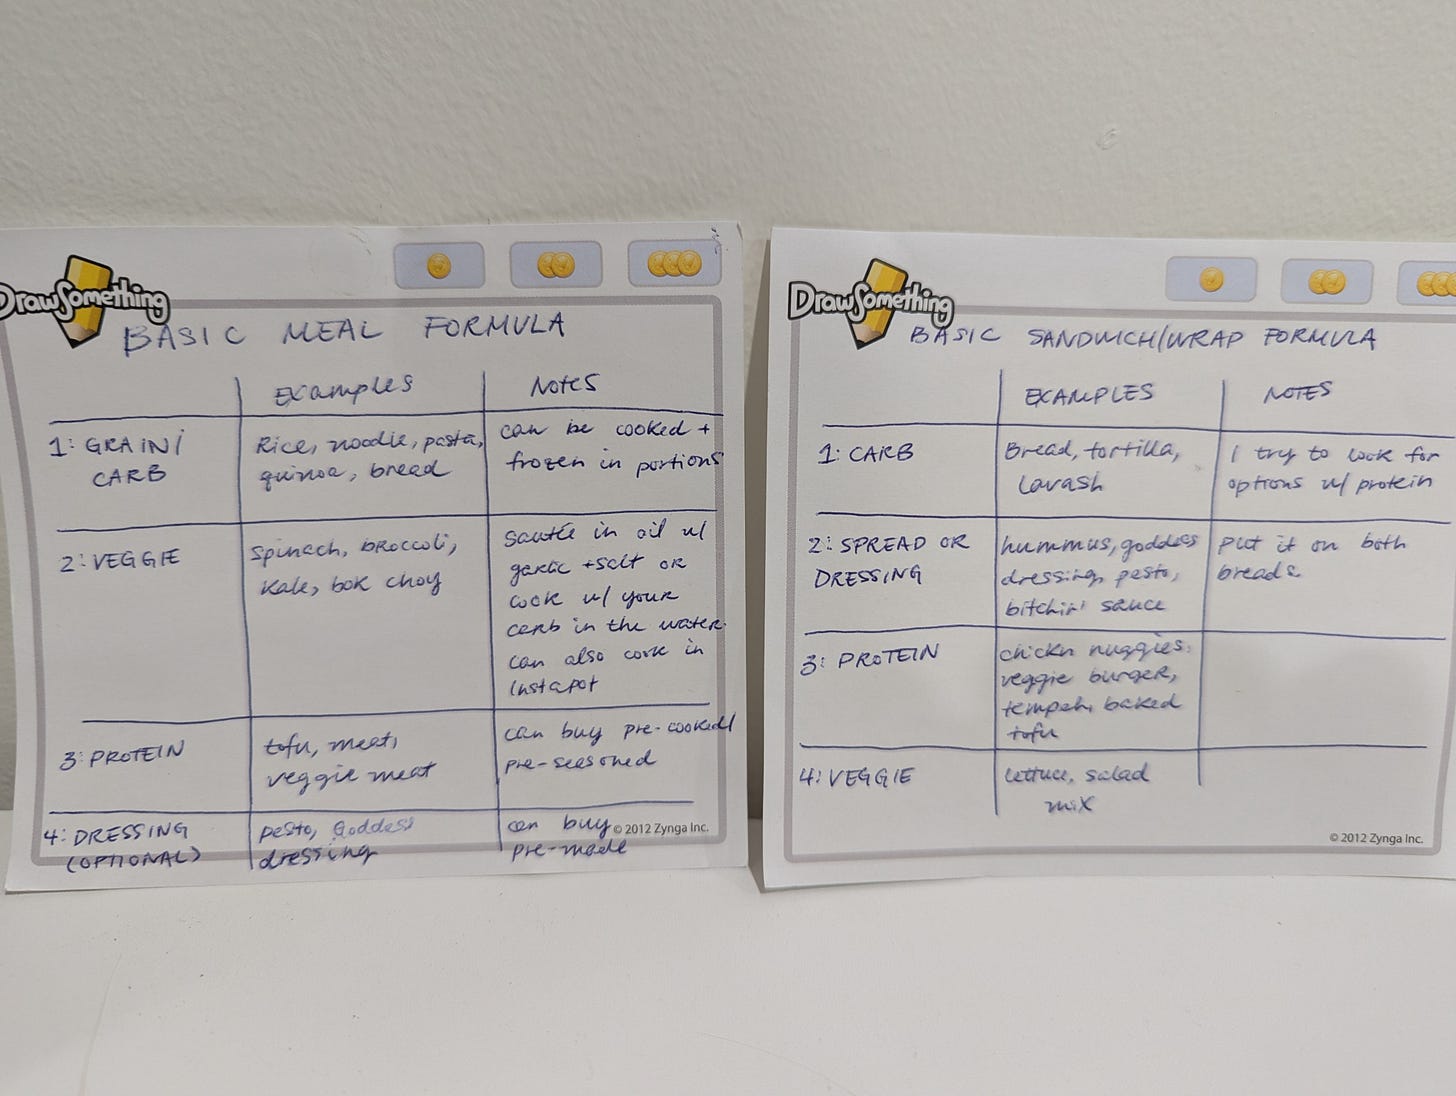 DrawSomething
BASIC MEAL FORMULA
Examples
Notes
1: GRAIN/
CARB
Rice, noodle, pasta,
quinoa, bread
can be cooked +
frozen in portions
2: VEGGIE
Spinach, broccoli,
Kale, bok choy
Sautée in oil w/
garlic + salt or
cook w/ your
carb in the water.
can also cook in
Instapot
3: PROTEIN
tofu, meat,
veggie meat
can buy pre-cooked/
pre-seasoned
4: DRESSING
(OPTIONAL)
pesto, Goddess
dressing
can buy
pre-made
© 2012 Zynga Inc.
DrawSomething
BASIC SANDWICH/WRAP FORMULA
EXAMPLES
NOTES
1: CARB
Bread, tortilla,
Lavash
I try to look for
options w/ protein
2: SPREAD OR
DRESSING
hummus, goddess
dressing, pesto,
bitchin' sauce
put it on both
breads
3: PROTEIN
chickn nuggies,
veggie burger,
tempeh, baked
tofu
4: VEGGIE
lettuce, salad
mix
© 2012 Zynga Inc.